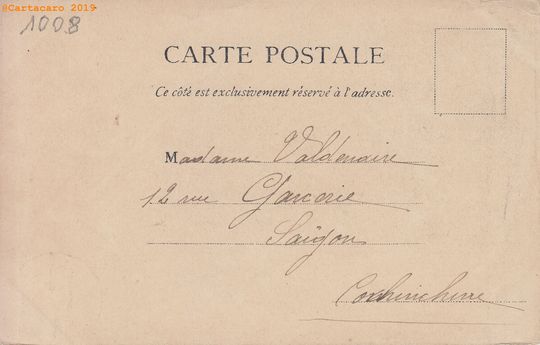 @Cartacaro 2019
1008
CARTE POSTALE
Ce côté est exclusivement réservé à l'adresse.
Madame Valdenaire
12 rue Glacerie
Saïgon
Cochinchine